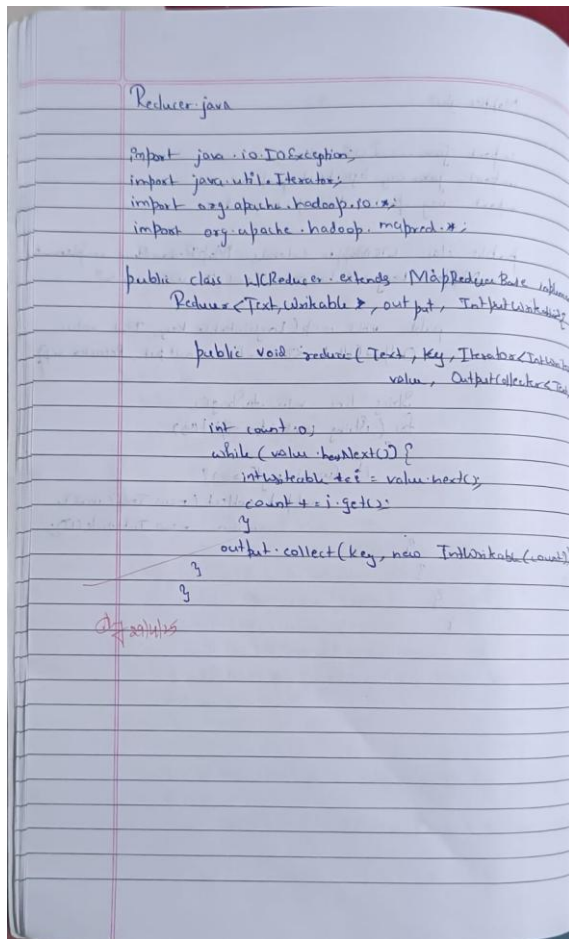 Reducer.java
import java.io.IOException;
import java.util.Iterator;
import org.apache.hadoop.io.*;
import org.apache.hadoop.mapred.*;
public class WCReducer extends MapReduceBase
Reducer<Text, Writable>, output,
public void reduce(Text, Key, Iterator<
value, OutputCollector<
int count = 0;
while (value.hasNext()) {
intWriteable i = value.next();
count += i.get();
}
output.collect(key, new IntWritable(count)
}
}
29/4/25